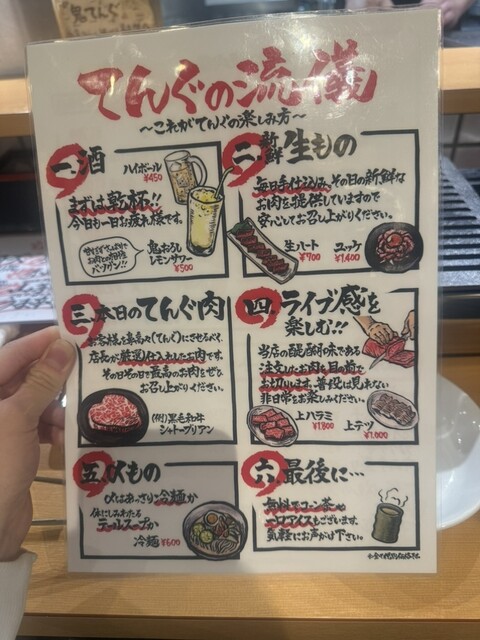 てんぐの流儀
〜これがてんぐの楽しみ方〜
一.酒
ハイボール
¥450
まずは乾杯!!
今日も一日お疲れ様です。
甘すぎずさっぱりで
お肉との相性
バツグン!!
鬼おろし
レモンサワー
¥500
二.新鮮生もの
毎日手仕込み、その日の新鮮な
お肉を提供していますので
安心してお召し上がりください。
生ハート
¥700
ユッケ
¥1,400
三.本日のてんぐ肉
お客様を鼻高々(てんぐ)にさせるべく、
店長が厳選仕入れしたお肉です。
その日その日で最高のお肉をぜひ
お召し上がりください。
(例)黒毛和牛
シャトーブリアン
四.ライブ感を
楽しむ!!
当店の醍醐味である
注文したお肉を目の前で
お切りします。普段は見れない
非日常をお楽しみください。
上ハラミ
¥1,800
上テツ
¥1,000
五.〆もの
〆はあっさり冷麺か
体にしみわたる
テールスープか
冷麺 ¥600
六.最後に…
無料でコーン茶や
一口アイスもございます。
気軽にお声がけ下さい。